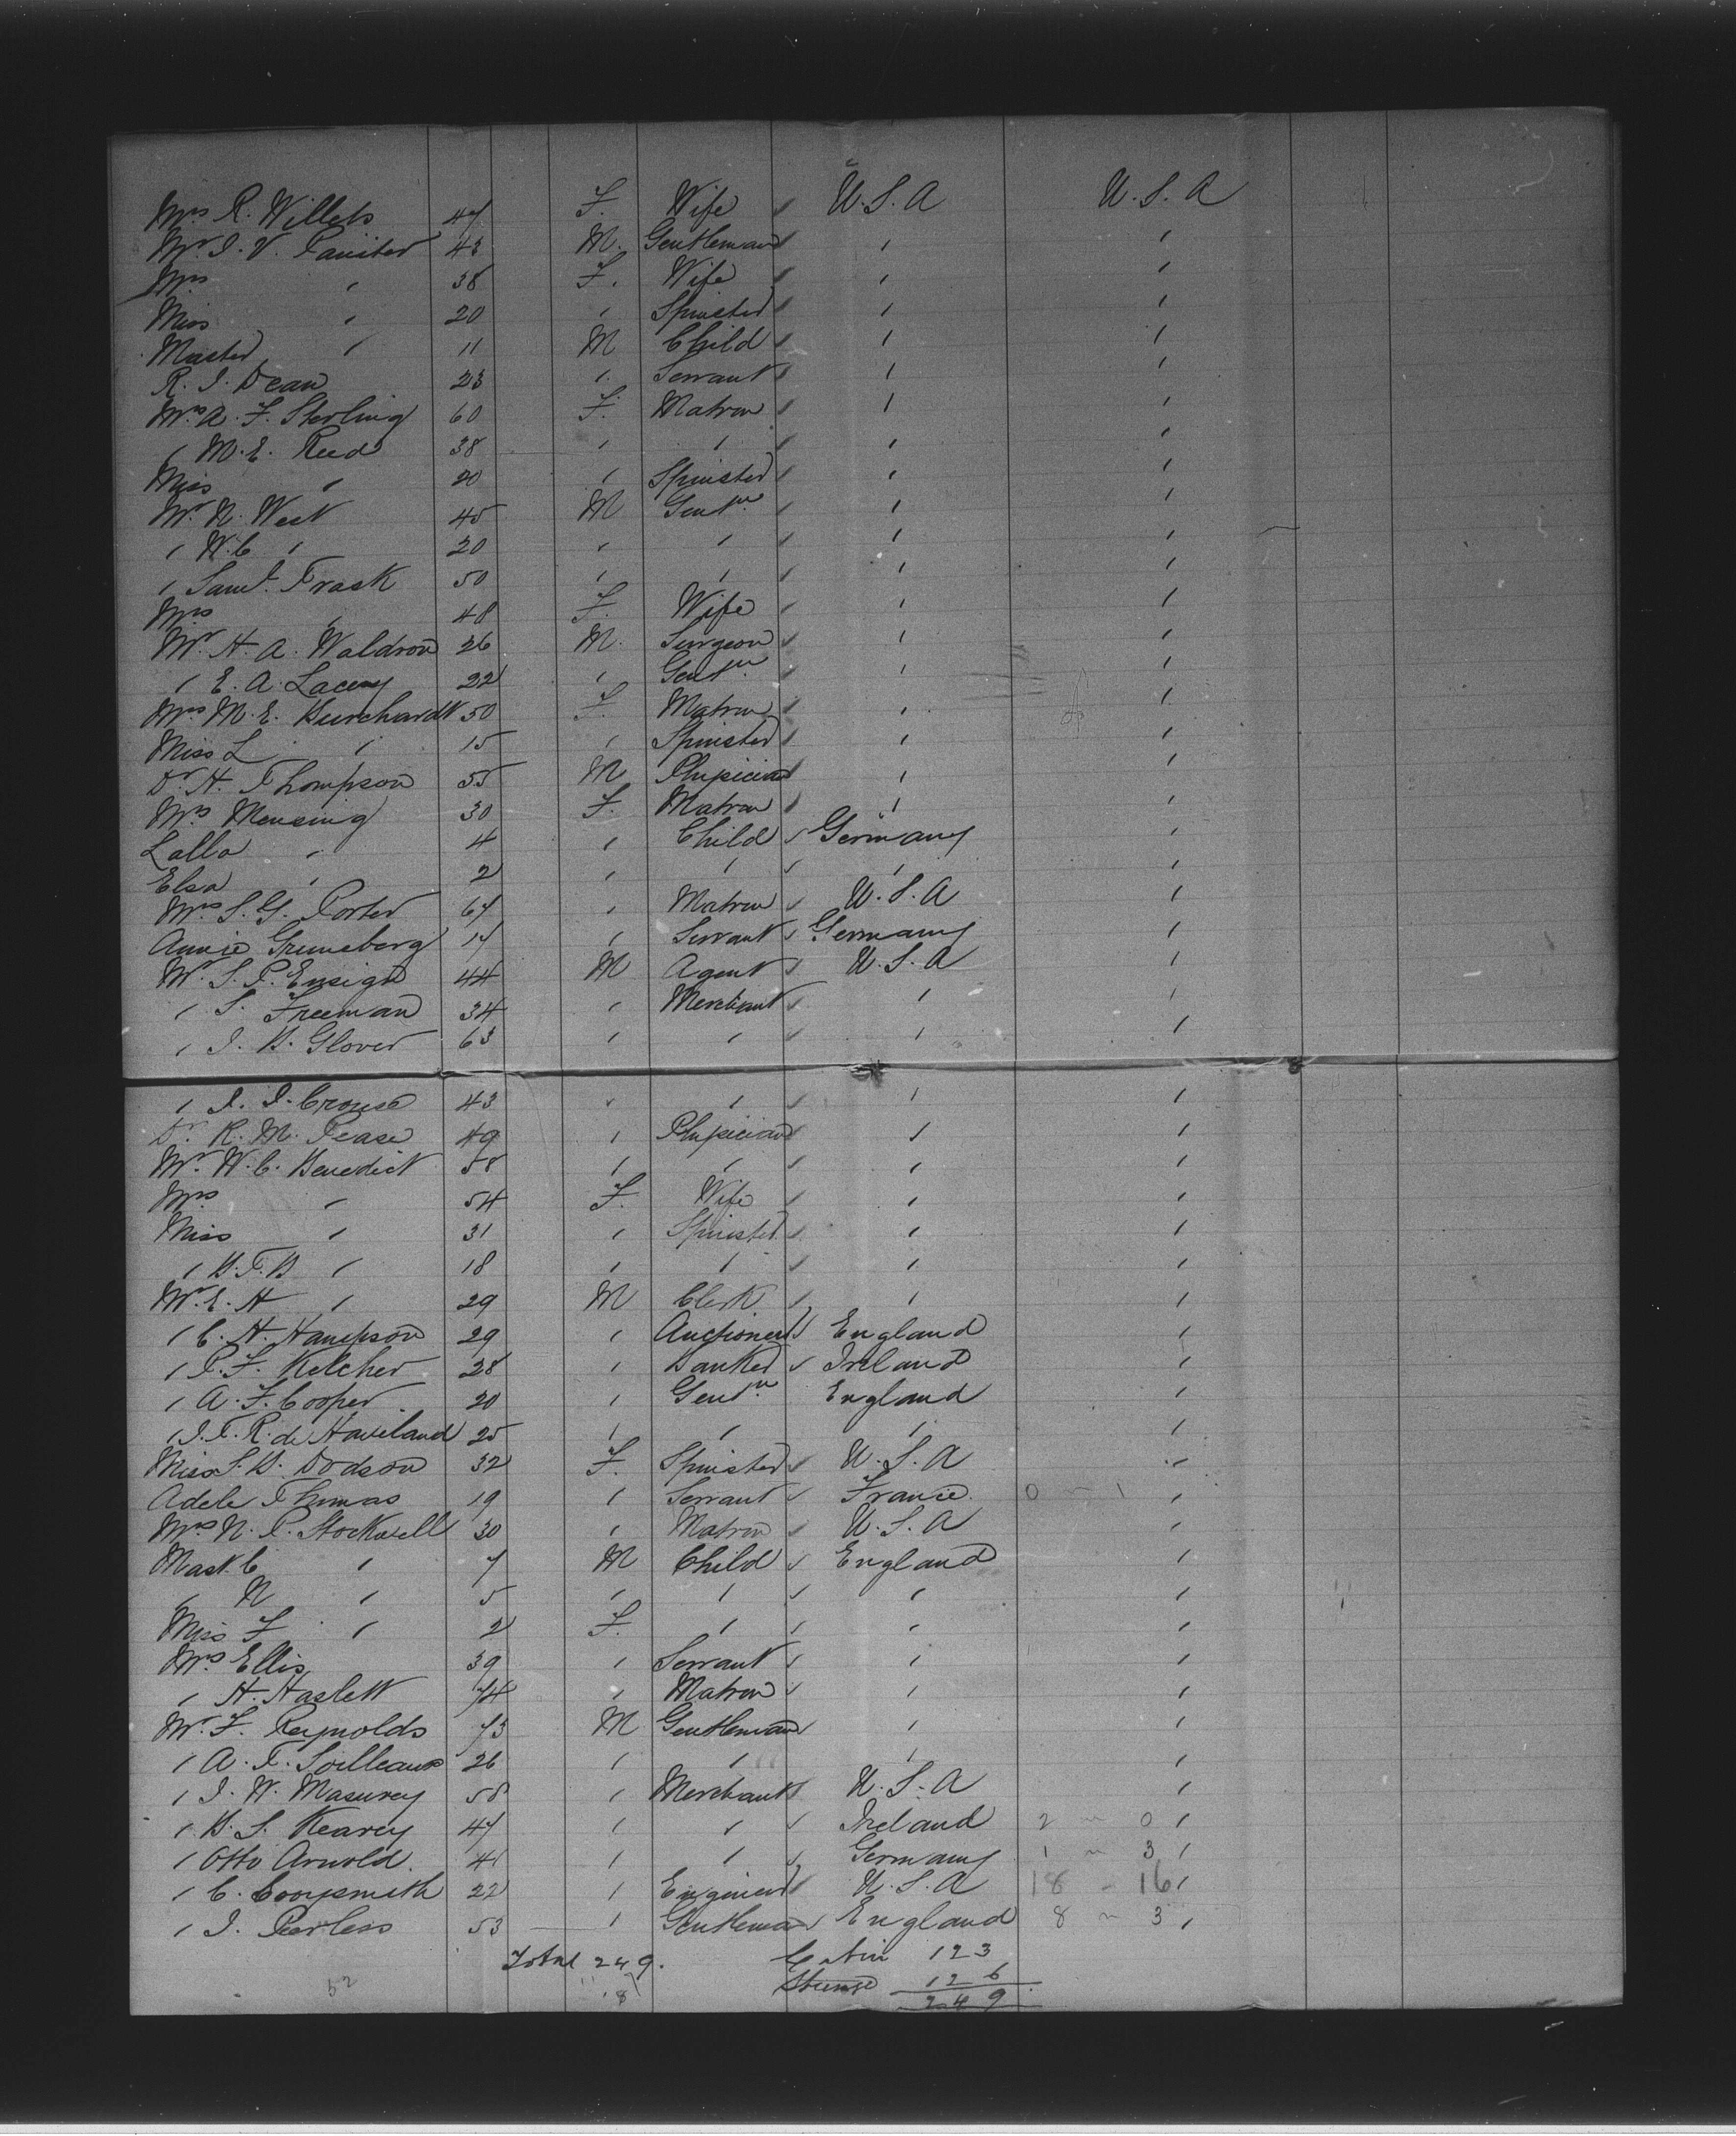 Mrs R. Willets 47 F. Wife U.S.A U.S.A
Mr J. V. Painter 43 M. Gentleman " "
Mrs " 38 F. Wife " "
Miss " 20 " Spinster " "
Master " 11 M Child " "
R. J. Dean 23 " Servant " "
Mrs A. F. Sterling 60 F. Matron " "
" M. E. Reed 38 " " " "
Miss " 20 " Spinster " "
Mr N. West 45 M Gentn " "
" W. C " 20 " " " "
" Saml. Trask 50 " " " "
Mrs " 48 F. Wife " "
Mr H. A. Waldron 26 M. Surgeon " "
" E. A. Lacey 22 " Gentn " "
Mrs M. E. Burchardt 50 F. Matron " "
Miss L " 15 " Spinster " "
Dr H. Thompson 55 M Physician " "
Mrs Mensing 30 F. Matron " "
Lalla " 4 " Child Germany "
Elsa " 2 " " " "
Mrs S. G. Porter 67 " Matron U.S.A "
Annie Gruneberg 17 " Servant Germany "
Mr S. P. Ensign 44 M Agent U.S.A "
" S. Freeman 34 " Merchant " "
" J. B. Glover 63 " " " "
" J. J. Crouse 43 " " " "
Dr K. M. Pease 49 " Physician " "
Mr W. C. Benedict 58 " " " "
Mrs " 54 F. Wife " "
Miss " 31 " Spinster " "
" B. F. B " 18 " " " "
Mr E. H " 29 M Clerk " "
" C. H. Hampson 29 " Auctioneer England "
" P. F. Kelcher 28 " Banker Ireland "
" A. F. Cooper 20 " Gentn England "
" J. T. R. de Haveland 25 " " " "
Miss S. B. Dodson 32 F. Spinster U.S.A "
Adele Thomas 19 " Servant France 0 - 1 "
Mrs N. P. Stockwell 30 " Matron U.S.A "
Mast. C " 7 M Child England "
" N " 5 " " " "
Miss F " 2 F. " " "
Mrs Ellis 39 " Servant " "
" H. Haslett 74 " Matron " "
Mr F. Reynolds 73 M Gentleman " "
" A. T. Soilleaux 26 " " " "
" J. W. Masurey 58 " Merchant U.S.A "
" B. S. Kearey 47 " " Ireland 2 - 0 "
" Otto Arnold. 41 " " Germany 1 - 3 "
" C. 22 " Engineer U.S.A 18 - 16 "
" J. Peerless 53 " Gentleman England 8 - 3 "
Total 249. Cabin 123
52 18 Steerage 126
249